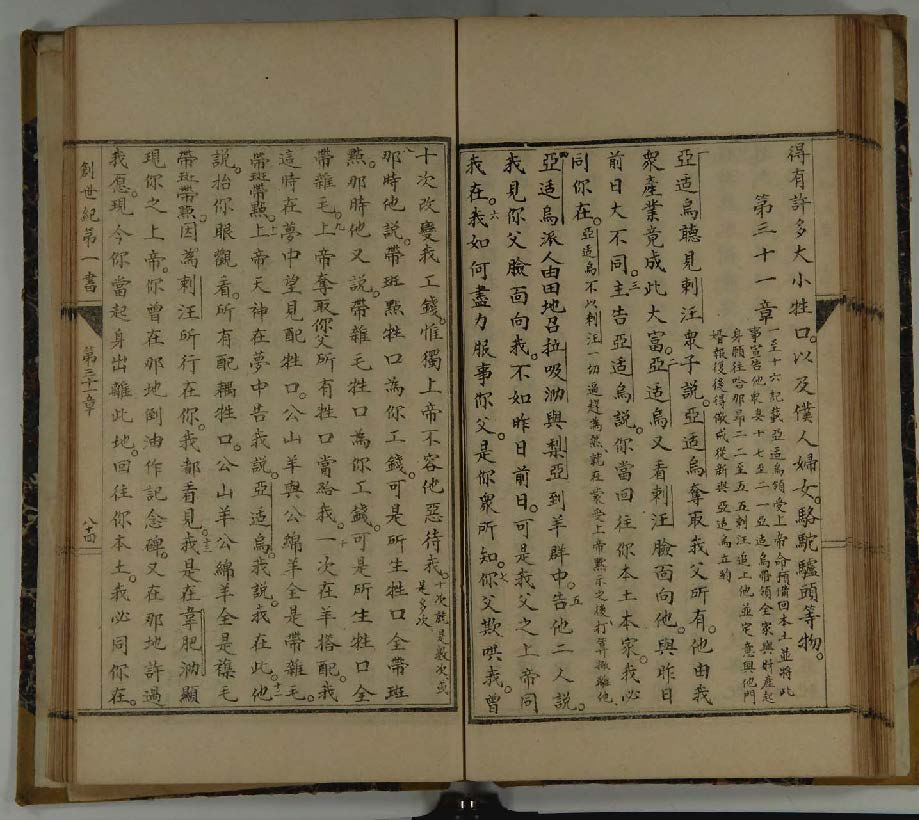 得有許多大小牲口。以及僕人婦女。駱駝驢頭等物。
第三十一章
一至十六記載亞适烏領受上帝命預備回本土並將此
事宣告他衆妻十七至二一亞适烏帶領全家與財產起
身願往哈那昂二二至五五剌汪追上他並定意與他鬥
後得儆戒從新與亞适烏立約
亞适烏聽見剌汪衆子說。亞适烏奪取我父所有。他由我
衆產業竟成此大富。二亞适烏又看剌汪臉面向他。與昨日
前日大不同。三主告亞适烏說。你當回往你本土本家。我必
同你在。亞适烏不以剌汪一切過趕為然就在蒙受上帝默示之後打算搬離他
四亞适烏派人由田地召拉吸泑與梨亞到羊群中。五告他二人說。
我見你父臉面向我。不如昨日前日。可是我父之上帝同
我在。六我如何盡力服事你父。是你衆所知。七你父欺哄我。曾
十次改變我工錢。惟獨上帝不容他惡待我。十次就是幾次或是多次
八那時他說。帶班點牲口為你工錢。可是所生牲口全帶班
點。那時他又說。帶雜毛牲口為你工錢。可是所生牲口全
帶雜毛。九上帝奪取你父所有牲口當給我。十一次在羊搭配。我
這時在夢中望見配牲口。公山羊與公綿羊全是帶雜毛。
帶斑帶點。十一上帝天神在夢中告我說。亞适烏。我說。我在此。十二他
說。抬你眼觀看。所有配耦牲口。公山羊公綿羊全是雜毛
帶斑帶點。因為剌汪所行在你。我都看見。十三我是在韋肥泑顯
現你之上帝。你曾在那地倒油作記念碑。又在那地許過
我愿。現今你當起身出離此地。回往你本土。我必同你在。
創世紀第一書
第三十一章
八十四